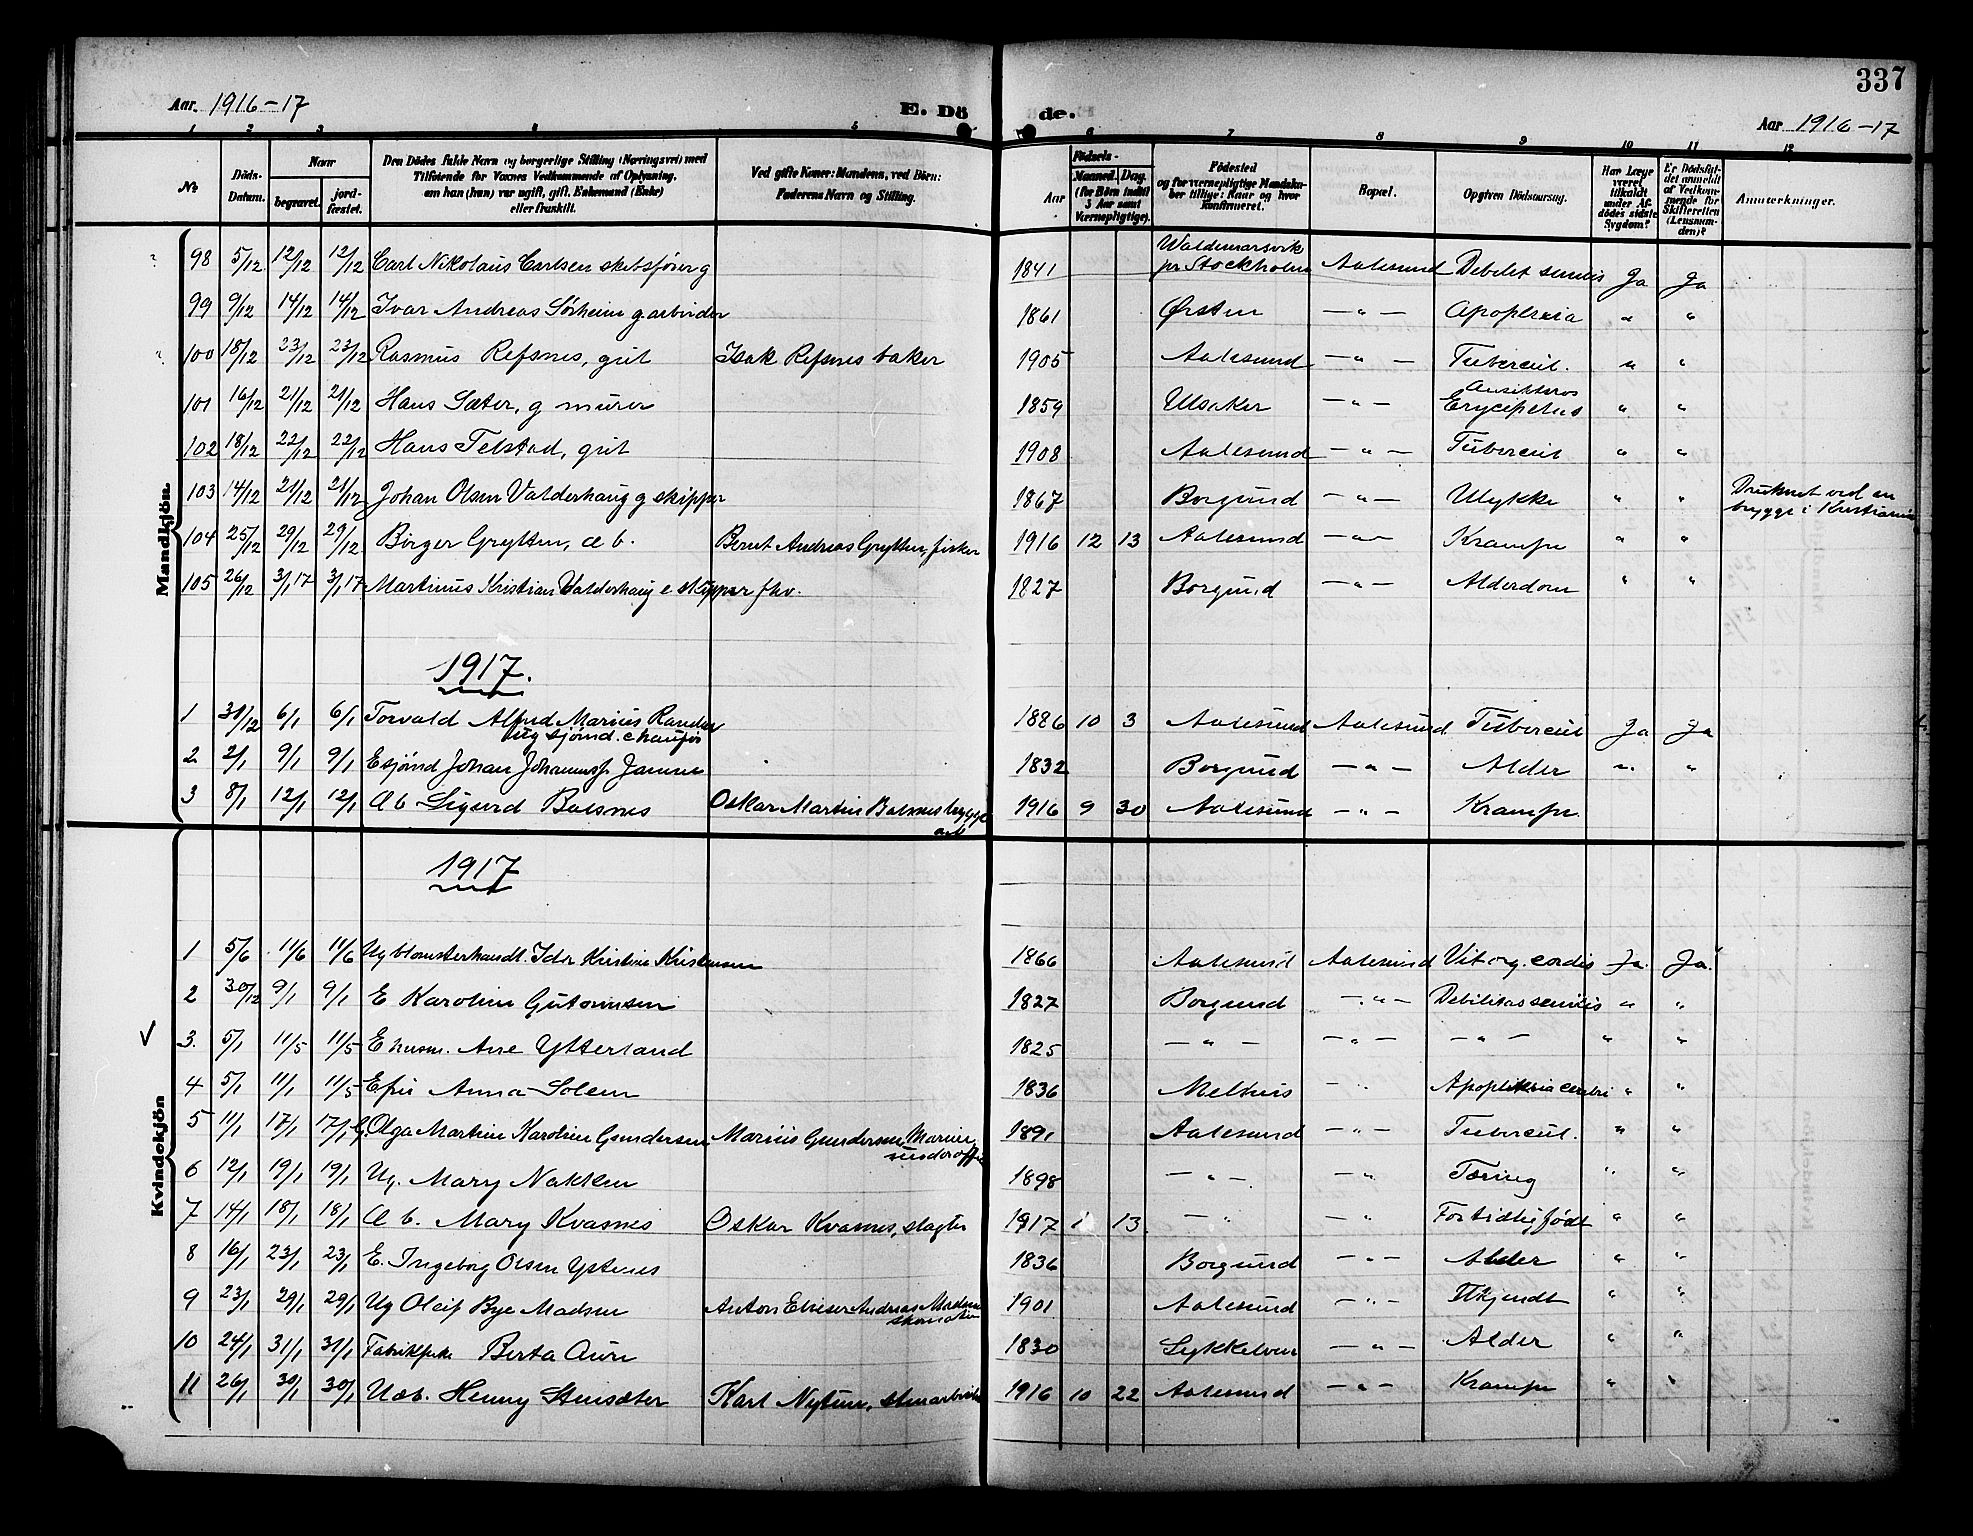 337
Aar. 1916-17 E. Dö de. Aar 1916-17
1 2 3 4 5 6 7 8 9 10 11 12
No
Döds-Datum.
Naar
begravet.
jord-fæstet.
Den Dödes fulde Navn og borgerlige Stilling (Næringsvei) med
Tilföiende for Voxnes Vedkommende af Oplysning,
om han (hun) var ugift, gift, Enkemand (Enke)
eller fraskilt.
Ved gifte Koner: Mandens, ved Börn:
Faderens Navn og Stilling.
Födsels-
Aar
Maaned. Dag.
(for Börn indtil
3 Aar samt
Værnepligtige).
Födested
og for værnepligtige Mandska-
ber tillige: Naar og hvor
konfirmeret.
Bopæl.
Opgiven Dödsaarsag.
Har Læge
været
tilkaldt
under Af-
dödes sidste
Sygdom?
Er Dödsfal-
det anmeldt
af Vedkom-
mende for
Skifteretten
(Lensman-
den)?
Anmærkninger.
Mandkjön
98 5/12 12/12 12/12 Carl Nikolaus Carlsen skibsfører g 1841 Waldemarsvik pr Stockholm Aalesund Debilet senilis Ja Ja
99 9/12 14/12 14/12 Ivar Andreas Sørheim g arbeider 1861 Ørsten -"- Apoplexia " "
100 18/12 23/12 23/12 Rasmus Refsnes, gut Isak Refsnes baker 1905 Aalesund -"- Tubercul. " "
101 16/12 21/12 21/12 Hans Sæter, g murer 1859 Ulsaker -"- Ansiktsros " "
102 18/12 22/12 22/12 Hans Telstad, gut 1908 Aalesund -"- Tubercul " "
103 14/12 21/12 21/12 Johan Olsen Valderhaug g skipper 1867 Borgund -"- Ulykke " " Druknet ved en brygge i Kristiania
104 25/12 29/12 29/12 Børger Grytten, æ b. Bernt Andreas Grytten, fisker 1916 12 13 Aalesund -"- Krampe " "
105 26/12 3/1 17 3/1 17 Martinus Kristian Valderhaug e. skipper fhv. 1827 Borgund -"- Alderdom " "
1917.
1 31/12 6/1 6/1 Torvald Alfred Marius Randers ug sjømd. chaufør 1886 10 3 Aalesund Aalesund Tubercul Ja Ja
2 2/1 9/1 9/1 E sjømd Johan Johannes Jansen 1832 Borgund -"- Alder " "
3 8/1 12/1 12/1 Æ b Sigurd Balsnes Oskar Martin Balsnes brygge arb 1916 9 30 Aalesund -"- Krampe.
Kvindekjön
1917
1 5/6 11/6 11/6 Ug blomsterhandl. Ida Kristine Kristensen 1866 Aalesund Aalesund Vit org. cordis Ja. Ja.
2 30/12 9/1 9/1 E Karoline Gutormsen 1827 Borgund -"- Debilitas senilis " "
3. 5/1 11/5 11/5 E husm. Ane Ytterland 1825 -"- -"- -"- " "
4 5/1 11/1 11/5 E fru Anna Solem 1836 Melhus -"- Apoplexia cerebri " "
5 11/1 17/1 17/1 G. Olga Martine Karoline Gundersen Marius Gundersen, Marine underoffic 1891 Aalesund -"- Tubercul. " "
6 12/1 19/1 19/1 Ug. Mary Nakken 1898 -"- -"- Tæring " "
7 14/1 18/1 18/1 Æ b. Mary Kvasnes Oskar Kvasnes, slagter 1917 1 13 -"- -"- For tidlig født " "
8 16/1 23/1 23/1 E. Ingeborg Olsen Ystenes 1836 Borgund -"- Alder " "
9 23/1 29/1 29/1 Ug Oleif Bye Madsen Anton Elieser Andreas Madsen skomaker 1901 Aalesund -"- Ukjendt " "
10 24/1 31/1 31/1 Fabrikpike Berta Aure 1830 Sykkelven -"- Alder " "
11 26/1 30/1 30/1 Uæb. Henny Stensæter Karl Nytun, stenarbeider 1916 10 22 Aalesund -"- Krampe " "